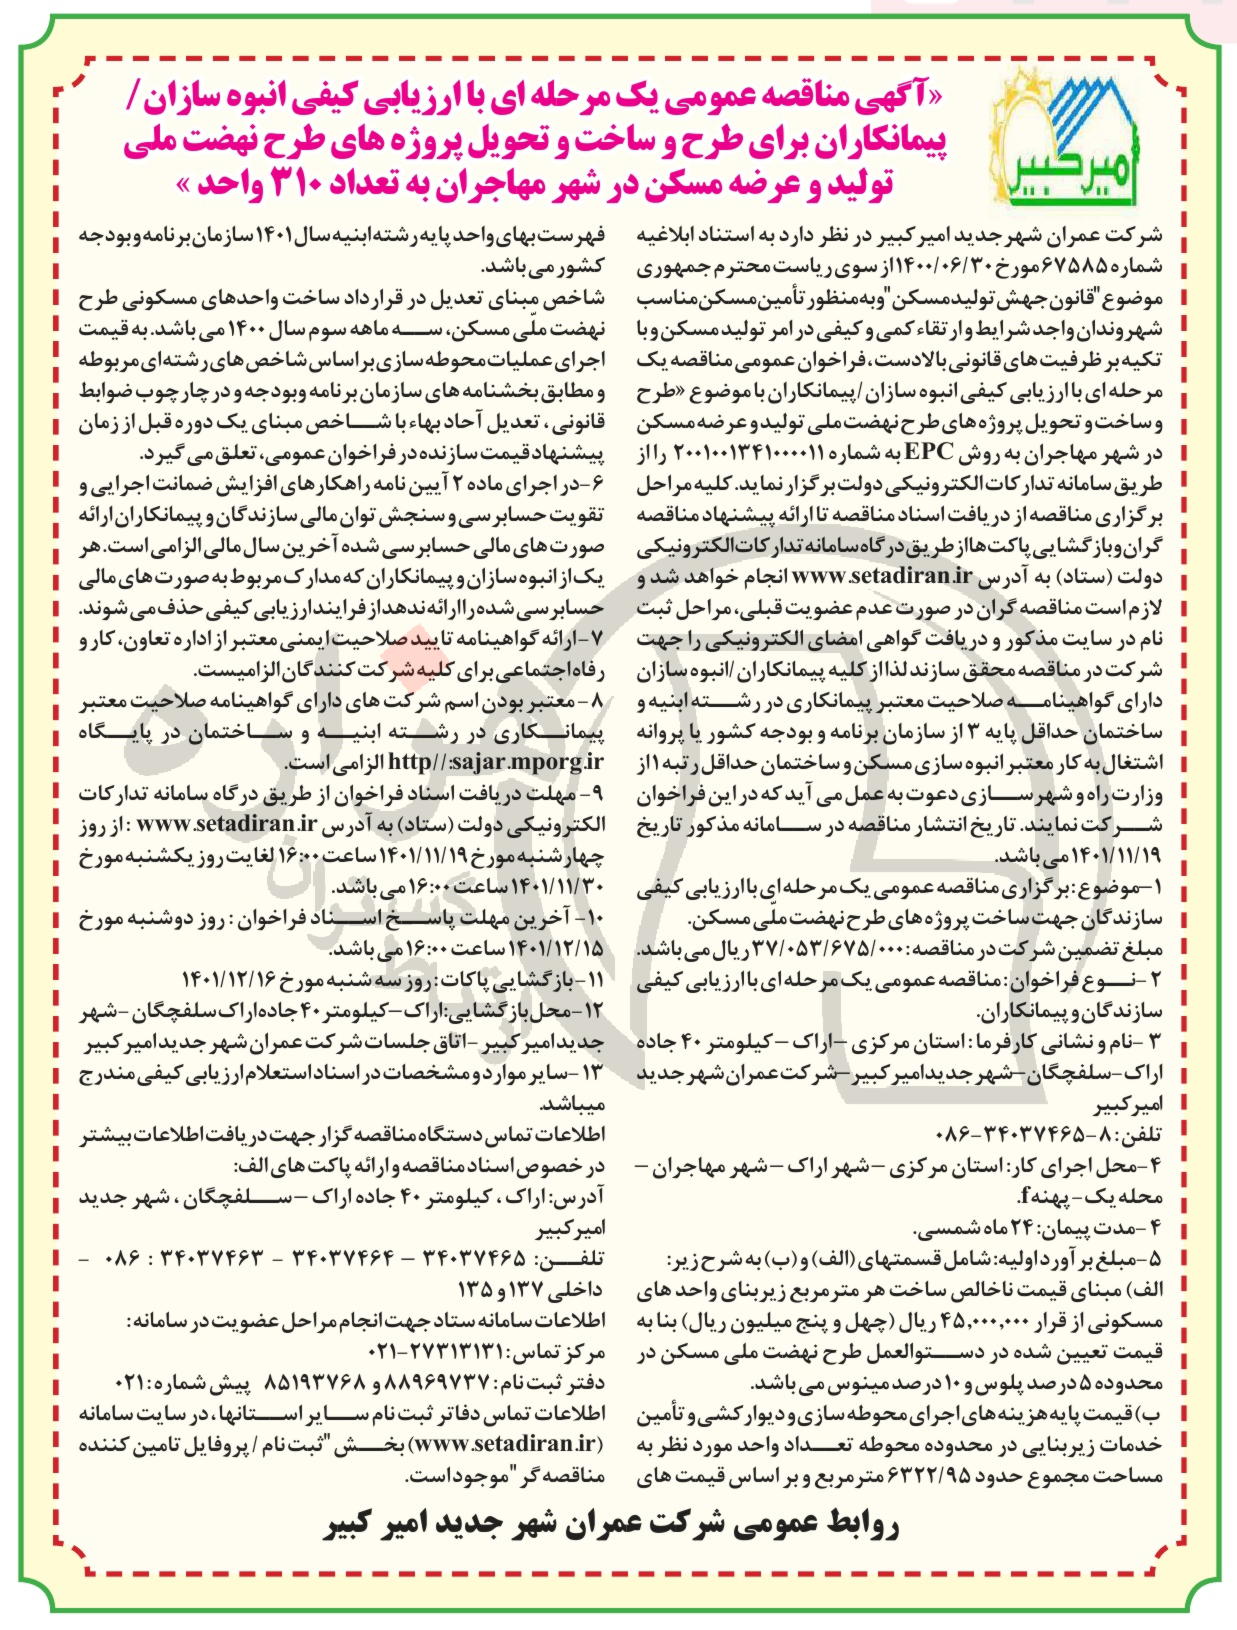 امیرکبیر
«آگهی مناقصه عمومی یک مرحله ای با ارزیابی کیفی انبوه سازان/
پیمانکاران برای طرح و ساخت و تحویل پروژه های طرح نهضت ملی
تولید و عرضه مسکن در شهر مهاجران به تعداد ۳۱۰ واحد »
شرکت عمران شهر جدید امیرکبیر در نظر دارد به استناد ابلاغیه
شماره ۶۷۵۸۵ مورخ ۱۴۰۰/۰۶/۳۰ از سوی ریاست محترم جمهوری
موضوع "قانون جهش تولید مسکن" و به منظور تأمین مسکن مناسب
شهروندان واجد شرایط و ارتقاء کمی و کیفی در امر تولید مسکن و با
تکیه بر ظرفیت های قانونی بالادست، فراخوان عمومی مناقصه یک
مرحله ای با ارزیابی کیفی انبوه سازان /پیمانکاران با موضوع «طرح
و ساخت و تحویل پروژه های طرح نهضت ملی تولید و عرضه مسکن
در شهر مهاجران به روش EPC به شماره ۲۰۰۱۰۰۱۳۴۱۰۰۰۰۱۱ را از
طریق سامانه تدارکات الکترونیکی دولت برگزار نماید. کلیه مراحل
برگزاری مناقصه از دریافت اسناد مناقصه تا ارائه پیشنهاد مناقصه
گران و بازگشایی پاکت ها از طریق درگاه سامانه تدارکات الکترونیکی
دولت (ستاد) به آدرس www.setadiran.ir انجام خواهد شد و
لازم است مناقصه گران در صورت عدم عضویت قبلی، مراحل ثبت
نام در سایت مذکور و دریافت گواهی امضای الکترونیکی را جهت
شرکت در مناقصه محقق سازند لذا از کلیه پیمانکاران /انبوه سازان
دارای گواهینامه صلاحیت معتبر پیمانکاری در رشته ابنیه و
ساختمان حداقل پایه ۳ از سازمان برنامه و بودجه کشور یا پروانه
اشتغال به کار معتبر انبوه سازی مسکن و ساختمان حداقل رتبه ۱ از
وزارت راه و شهرسازی دعوت به عمل می آید که در این فراخوان
شرکت نمایند. تاریخ انتشار مناقصه در سامانه مذکور تاریخ
۱۴۰۱/۱۱/۱۹ می باشد.
۱-موضوع: برگزاری مناقصه عمومی یک مرحله ای با ارزیابی کیفی
سازندگان جهت ساخت پروژه های طرح نهضت ملّی مسکن.
مبلغ تضمین شرکت در مناقصه: ۳۷/۰۵۳/۶۷۵/۰۰۰ ریال می باشد.
۲ -نوع فراخوان: مناقصه عمومی یک مرحله ای با ارزیابی کیفی
سازندگان و پیمانکاران.
۳ -نام و نشانی کارفرما: استان مرکزی –اراک – کیلومتر ۴۰ جاده
اراک-سلفچگان-شهر جدید امیرکبیر-شرکت عمران شهر جدید
امیرکبیر
تلفن: ۸-۳۴۰۳۷۴۶۵-۰۸۶
۴-محل اجرای کار: استان مرکزی – شهر اراک – شهر مهاجران –
محله یک - پهنه f.
۴ -مدت پیمان: ۲۴ ماه شمسی.
۵-مبلغ برآورد اولیه: شامل قسمتهای (الف) و (ب) به شرح زیر:
الف) مبنای قیمت ناخالص ساخت هر مترمربع زیربنای واحد های
مسکونی از قرار ۴۵,۰۰۰,۰۰۰ ریال (چهل و پنج میلیون ریال) بنا به
قیمت تعیین شده در دستوالعمل طرح نهضت ملی مسکن در
محدوده ۵ درصد پلوس و ۱۰ درصد مینوس می باشد.
ب) قیمت پایه هزینه های اجرای محوطه سازی و دیوارکشی و تأمین
خدمات زیربنایی در محدوده محوطه تعداد واحد مورد نظر به
مساحت مجموع حدود ۶۳۲۲/۹۵ مترمربع و بر اساس قیمت های
فهرست بهای واحد پایه رشته ابنیه سال ۱۴۰۱ سازمان برنامه و بودجه
کشور می باشد.
شاخص مبنای تعدیل در قرارداد ساخت واحدهای مسکونی طرح
نهضت ملّی مسکن، سه ماهه سوم سال ۱۴۰۰ می باشد. به قیمت
اجرای عملیات محوطه سازی بر اساس شاخص های رشته ای مربوطه
و مطابق بخشنامه های سازمان برنامه و بودجه و در چارچوب ضوابط
قانونی ، تعدیل آحاد بهاء با شاخص مبنای یک دوره قبل از زمان
پیشنهاد قیمت سازنده در فراخوان عمومی، تعلق می گیرد.
۶-در اجرای ماده ۲ آیین نامه راهکارهای افزایش ضمانت اجرایی و
تقویت حسابرسی و سنجش توان مالی سازندگان و پیمانکاران ارائه
صورت های مالی حسابرسی شده آخرین سال مالی الزامی است. هر
یک از انبوه سازان و پیمانکاران که مدارک مربوط به صورت های مالی
حسابرسی شده را ارائه ندهد از فرایند ارزیابی کیفی حذف می شوند.
۷-ارائه گواهینامه تایید صلاحیت ایمنی معتبر از اداره تعاون، کار و
رفاه اجتماعی برای کلیه شرکت کنندگان الزامیست.
۸ - معتبر بودن اسم شرکت های دارای گواهینامه صلاحیت معتبر
پیمانکاری در رشته ابنیه و ساختمان در پایگاه
http//:sajar.mporg.ir الزامی است.
۹- مهلت دریافت اسناد فراخوان از طریق درگاه سامانه تدارکات
الکترونیکی دولت (ستاد) به آدرس www.setadiran.ir : از روز
چهارشنبه مورخ ۱۴۰۱/۱۱/۱۹ ساعت ۱۶:۰۰ لغایت روز یکشنبه مورخ
۱۴۰۱/۱۱/۳۰ ساعت ۱۶:۰۰ می باشد.
۱۰- آخرین مهلت پاسخ اسناد فراخوان : روز دوشنبه مورخ
۱۴۰۱/۱۲/۱۵ ساعت ۱۶:۰۰ می باشد.
۱۱-بازگشایی پاکات: روز سه شنبه مورخ ۱۴۰۱/۱۲/۱۶
۱۲-محل بازگشایی: اراک–کیلومتر ۴۰ جاده اراک سلفچگان -شهر
جدید امیرکبیر -اتاق جلسات شرکت عمران شهر جدید امیرکبیر
۱۳-سایر موارد و مشخصات در اسناد استعلام ارزیابی کیفی مندرج
میباشد.
اطلاعات تماس دستگاه مناقصه گزار جهت دریافت اطلاعات بیشتر
در خصوص اسناد مناقصه و ارائه پاکت های الف:
آدرس: اراک ، کیلومتر ۴۰ جاده اراک –سلفچگان ، شهر جدید
امیرکبیر
تلفن: ۳۴۰۳۷۴۶۵ – ۳۴۰۳۷۴۶۴ - ۳۴۰۳۷۴۶۳ : ۰۸۶ -
داخلی ۱۳۷ و ۱۳۵
اطلاعات سامانه ستاد جهت انجام مراحل عضویت در سامانه :
مرکز تماس: ۲۷۳۱۳۱۳۱-۰۲۱
دفتر ثبت نام: ۸۸۹۶۹۷۳۷ و ۸۵۱۹۳۷۶۸ پیش شماره: ۰۲۱
اطلاعات تماس دفاتر ثبت نام سایر استانها، در سایت سامانه
(www.setadiran.ir) بخش "ثبت نام / پروفایل تامین کننده
مناقصه گر" موجود است.
روابط عمومی شرکت عمران شهر جدید امیر کبیر
هزاره